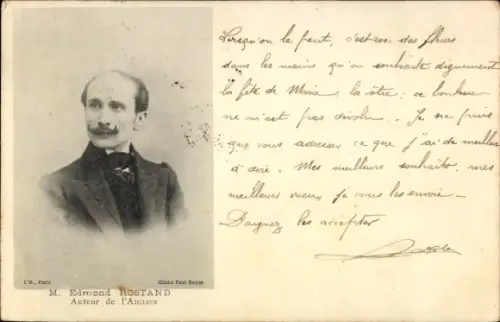 Lorsqu'on le peut, c'est avec des fleurs
dans les mains qu'on souhaite dignement
la fête de Mimie, la vôtre; ce bonheur
ne m'est pas dévolu. Je ne puis
que vous adresser ce que j'ai de meilleur
à dire. Mes meilleurs souhaits, mes
meilleurs vœux je vous les envoie –
Daignez les accepter
I'N., Paris
Cliché Paul Boyer
M. Edmond ROSTAND
Auteur de l'AIGLON